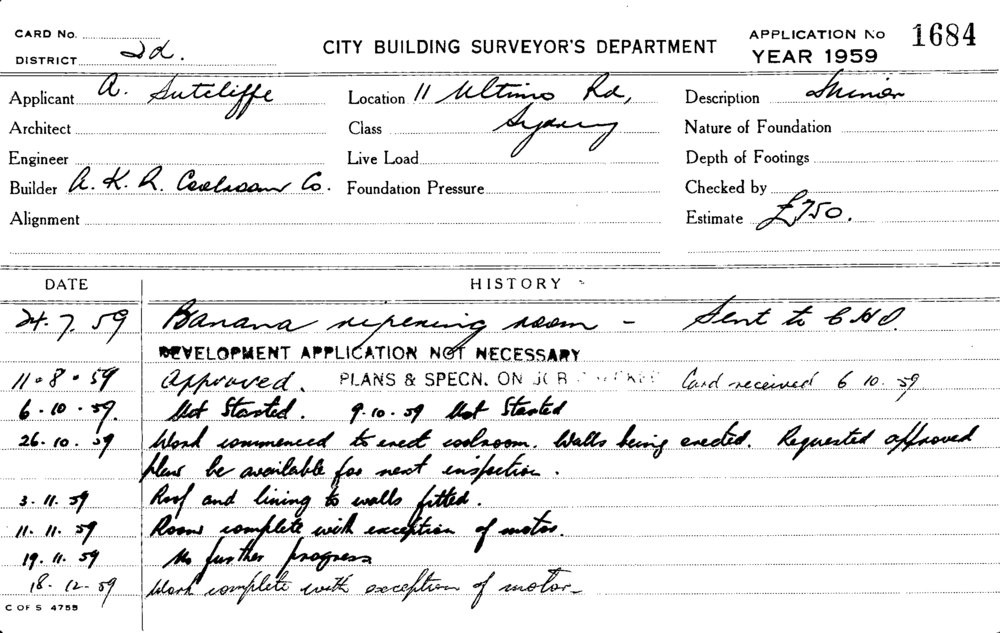 CARD No.
DISTRICT 2d.
CITY BUILDING SURVEYOR'S DEPARTMENT
APPLICATION No 1684
YEAR 1959
Applicant A. Sutcliffe
Location 11 Ultimo Rd,
Description Minor
Architect
Class Sydney
Nature of Foundation
Engineer
Live Load
Depth of Footings
Builder A. K. R. Coolroom Co.
Foundation Pressure
Checked by
Alignment
Estimate £750.
DATE HISTORY
24.7.59 Banana ripening room – Sent to C H O.
DEVELOPMENT APPLICATION NOT NECESSARY
11.8.59 Approved. PLANS & SPECN. ON JOB Card received 6 10. 59
6.10.59. Not Started. 9.10.59 Not Started
26.10.59 Work commenced to erect coolroom. Walls being erected. Requested approved
plans be available for next inspection.
3.11.59 Roof and lining to walls fitted.
11.11.59 Room complete with exception of motor.
19.11.59 No further progress
18-12-59 Work complete with exception of motor-
C OF S 4755